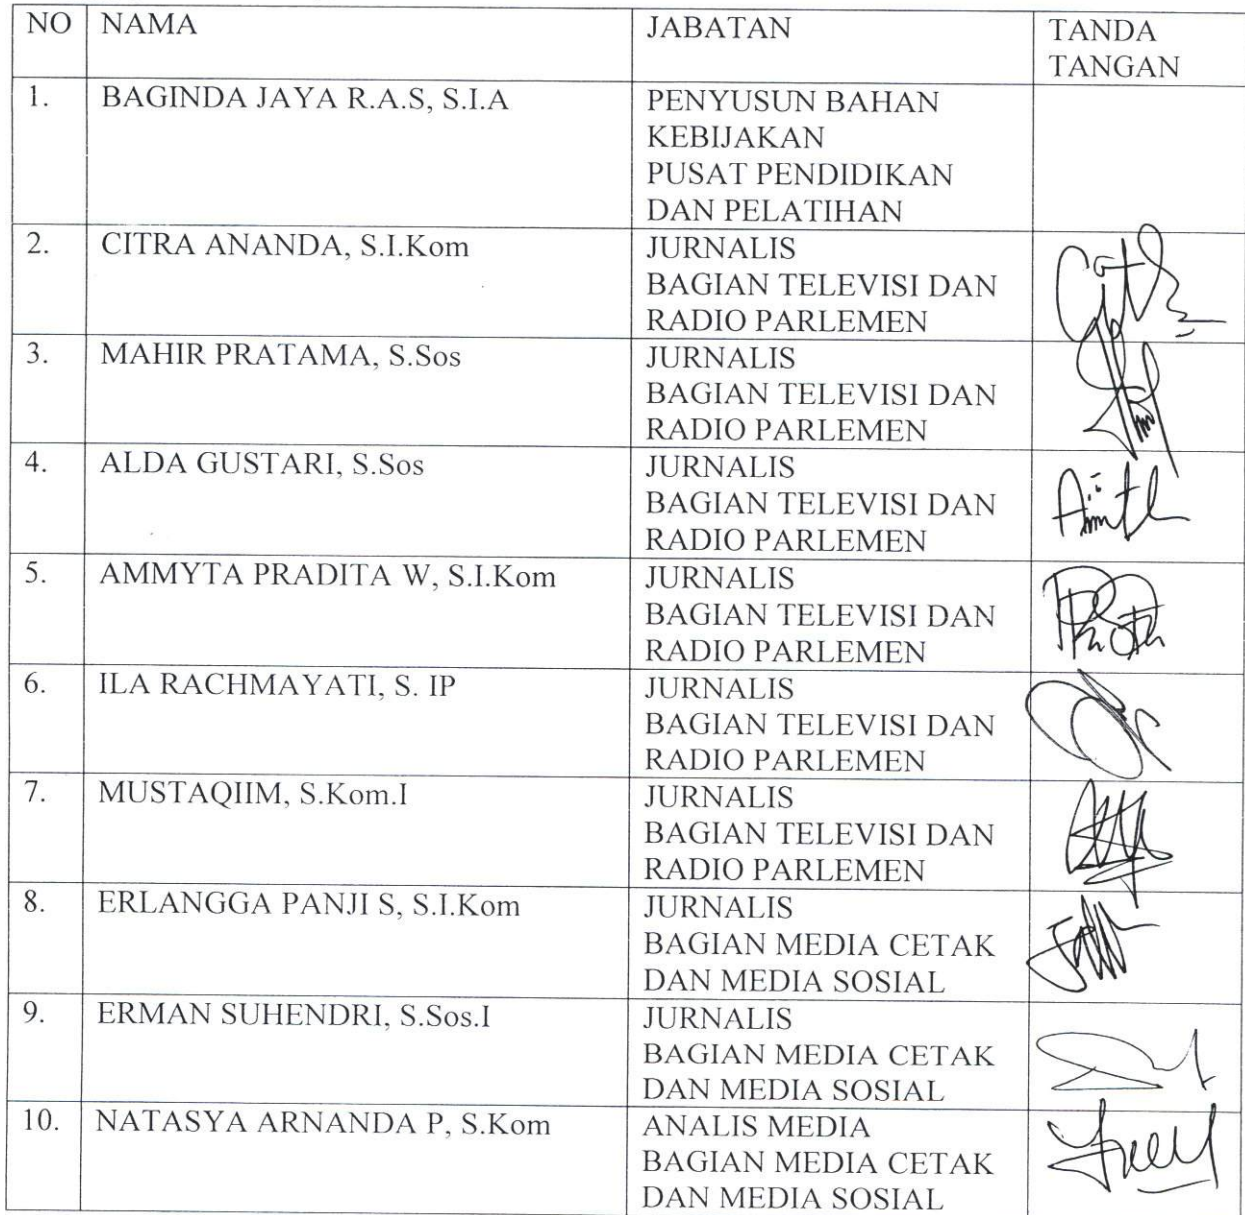 NO NAMA JABATAN TANDA
TANGAN
1. BAGINDA JAYA R.A.S, S.I.A PENYUSUN BAHAN
KEBIJAKAN
PUSAT PENDIDIKAN
DAN PELATIHAN
2. CITRA ANANDA, S.I.Kom JURNALIS
BAGIAN TELEVISI DAN
RADIO PARLEMEN
3. MAHIR PRATAMA, S.Sos JURNALIS
BAGIAN TELEVISI DAN
RADIO PARLEMEN
4. ALDA GUSTARI, S.Sos JURNALIS
BAGIAN TELEVISI DAN
RADIO PARLEMEN
5. AMMYTA PRADITA W, S.I.Kom JURNALIS
BAGIAN TELEVISI DAN
RADIO PARLEMEN
6. ILA RACHMAYATI, S. IP JURNALIS
BAGIAN TELEVISI DAN
RADIO PARLEMEN
7. MUSTAQIIM, S.Kom.I JURNALIS
BAGIAN TELEVISI DAN
RADIO PARLEMEN
8. ERLANGGA PANJI S, S.I.Kom JURNALIS
BAGIAN MEDIA CETAK
DAN MEDIA SOSIAL
9. ERMAN SUHENDRI, S.Sos.I JURNALIS
BAGIAN MEDIA CETAK
DAN MEDIA SOSIAL
10. NATASYA ARNANDA P, S.Kom ANALIS MEDIA
BAGIAN MEDIA CETAK
DAN MEDIA SOSIAL